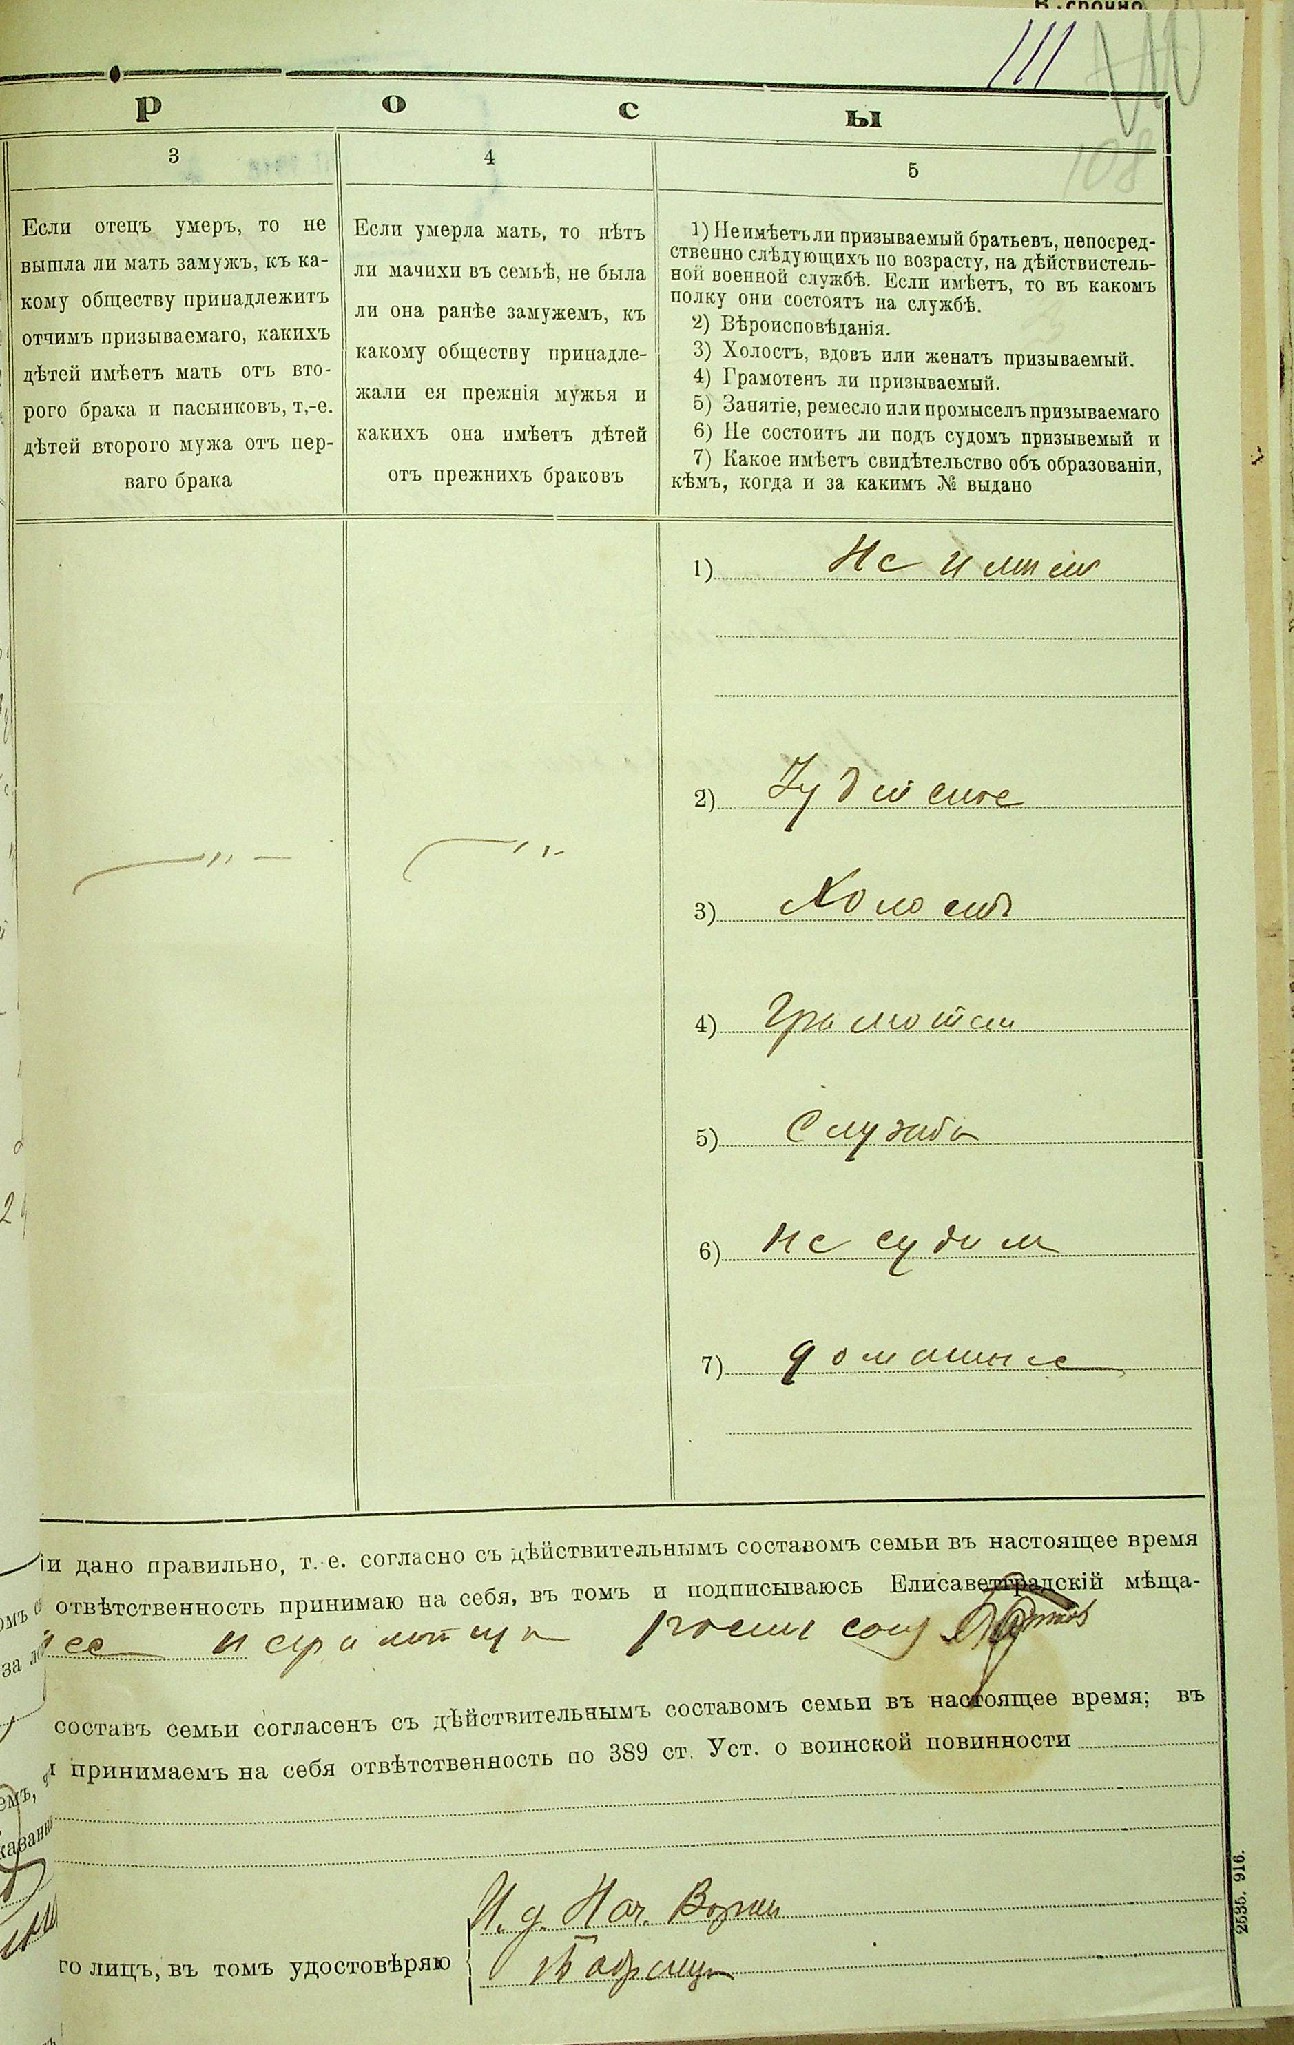 В.срочно
111
108
р о с ы
3
Если отецъ умеръ, то не
вышла ли мать замужъ, къ ка-
кому обществу принадлежитъ
отчимъ призываемаго, какихъ
дѣтей имѣетъ мать отъ вто-
рого брака и пасынковъ, т.-е.
дѣтей второго мужа отъ пер-
ваго брака
4
Если умерла мать, то нѣтъ
ли мачихи въ семьѣ, не была
ли она ранѣе замужемъ, къ
какому обществу принадле-
жали ея прежнія мужья и
какихъ она имѣетъ дѣтей
отъ прежнихъ браковъ
5
1) Не имѣетъ ли призываемый братьевъ, непосред-
ственно слѣдующихъ по возрасту, на дѣйствистель-
ной военной службѣ. Если имѣетъ, то въ какомъ
полку они состоятъ на службѣ.
2) Вѣроисповѣданія.
3) Холостъ, вдовъ или женатъ призываемый.
4) Грамотенъ ли призываемый.
5) Занятіе, ремесло или промыселъ призываемаго
6) Не состоитъ ли подъ судомъ призывемый и
7) Какое имѣетъ свидѣтельство объ образованіи,
кѣмъ, когда и за какимъ № выдано
1) Не имѣет
2) Іудейское
3) Холостъ
4) Грамотен
5) Служба
6) не судим
7) домашнее
іи дано правильно, т.-е. согласно съ дѣйствительнымъ составомъ семьи въ настоящее время
отвѣтственность принимаю на себя, въ томъ и подписываюсь Елисаветградскій мѣща-
составъ семьи согласенъ съ дѣйствительнымъ составомъ семьи въ настоящее время; въ
принимаемъ на себя отвѣтственность по 389 ст. Уст. о воинской повинности
И. д. Нач.
го лицъ, въ томъ удостовѣряю
2535. 916.